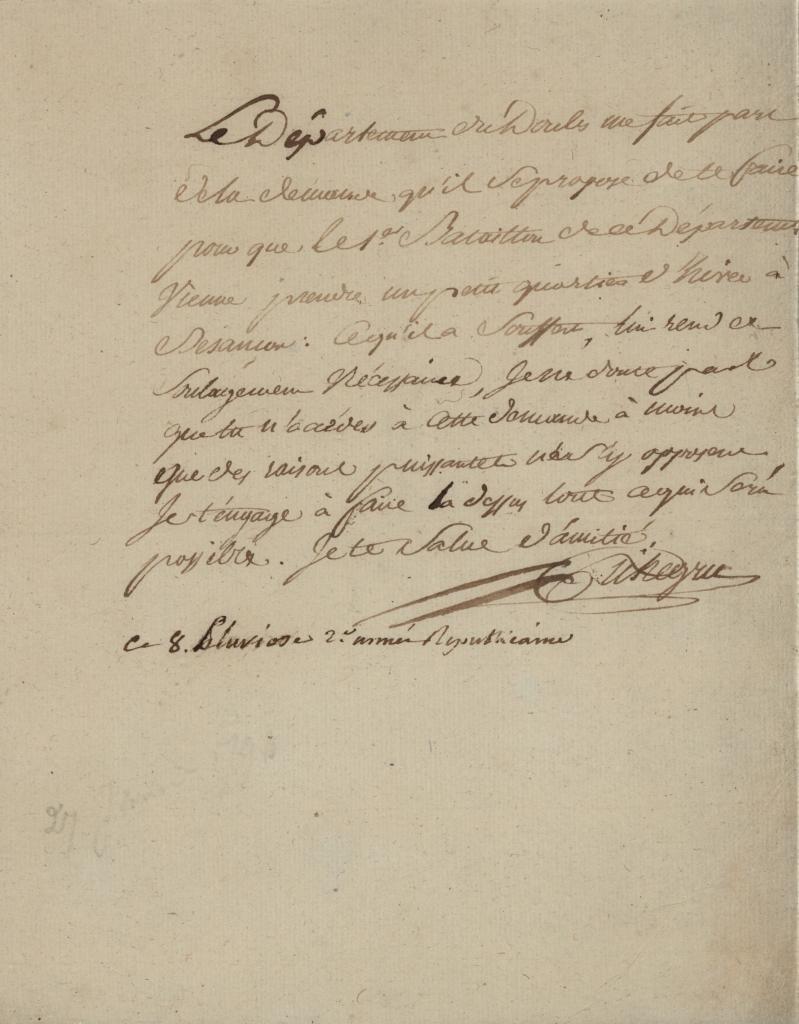 Le Département du Doubs me fait part
de la demande qu'il se propose de te faire
pour que le 1er Bataillon de ce Département
Vienne prendre un petit quartier d'hiver à
Besançon. Ce qu'il a Souffert, lui rend ce
Soulagement Nécessaire, Je ne doute pas
que tu n'accèdes à cette demande à moins
que des raisons puissantes ne s'y opposent
Je t'engage à faire la dessus tout ce qui sera
possible. Je te Salue d'amitié.
Pichegru
Ce 8. Pluviose 2e année Républicaine
27